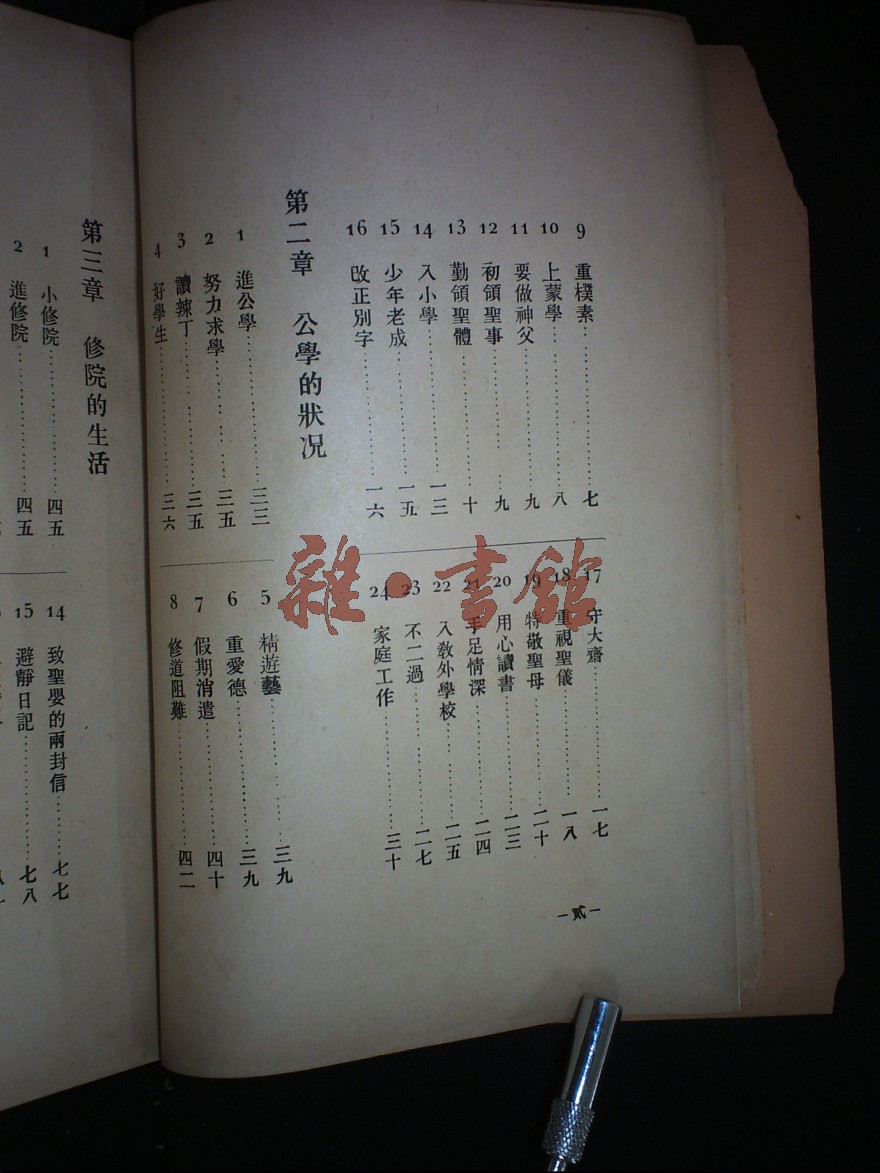 9 重樸素 七
10 上蒙學 八
11 要做神父 九
12 初領聖事 九
13 勤領聖體 十
14 入小學 一三
15 少年老成 一五
16 改正別字 一六
17 守大齋 一七
18 重視聖儀 一八
19 特敬聖母 二十
20 用心讀書 二三
21 手足情深 二四
22 入敎外學校 二五
23 不二過 二七
24 家庭工作 三十
第二章 公學的狀況
1 進公學 三三
2 努力求學 三五
3 讀辣丁 三五
4 好學生 三六
5 精遊藝 三九
6 重愛德 三九
7 假期消遣 四十
8 修道阻難 四二
第三章 修院的生活
1 小修院 四五
2 進修院 四五
14 致聖嬰的兩封信 七七
15 避靜日記 七八
雜·書館